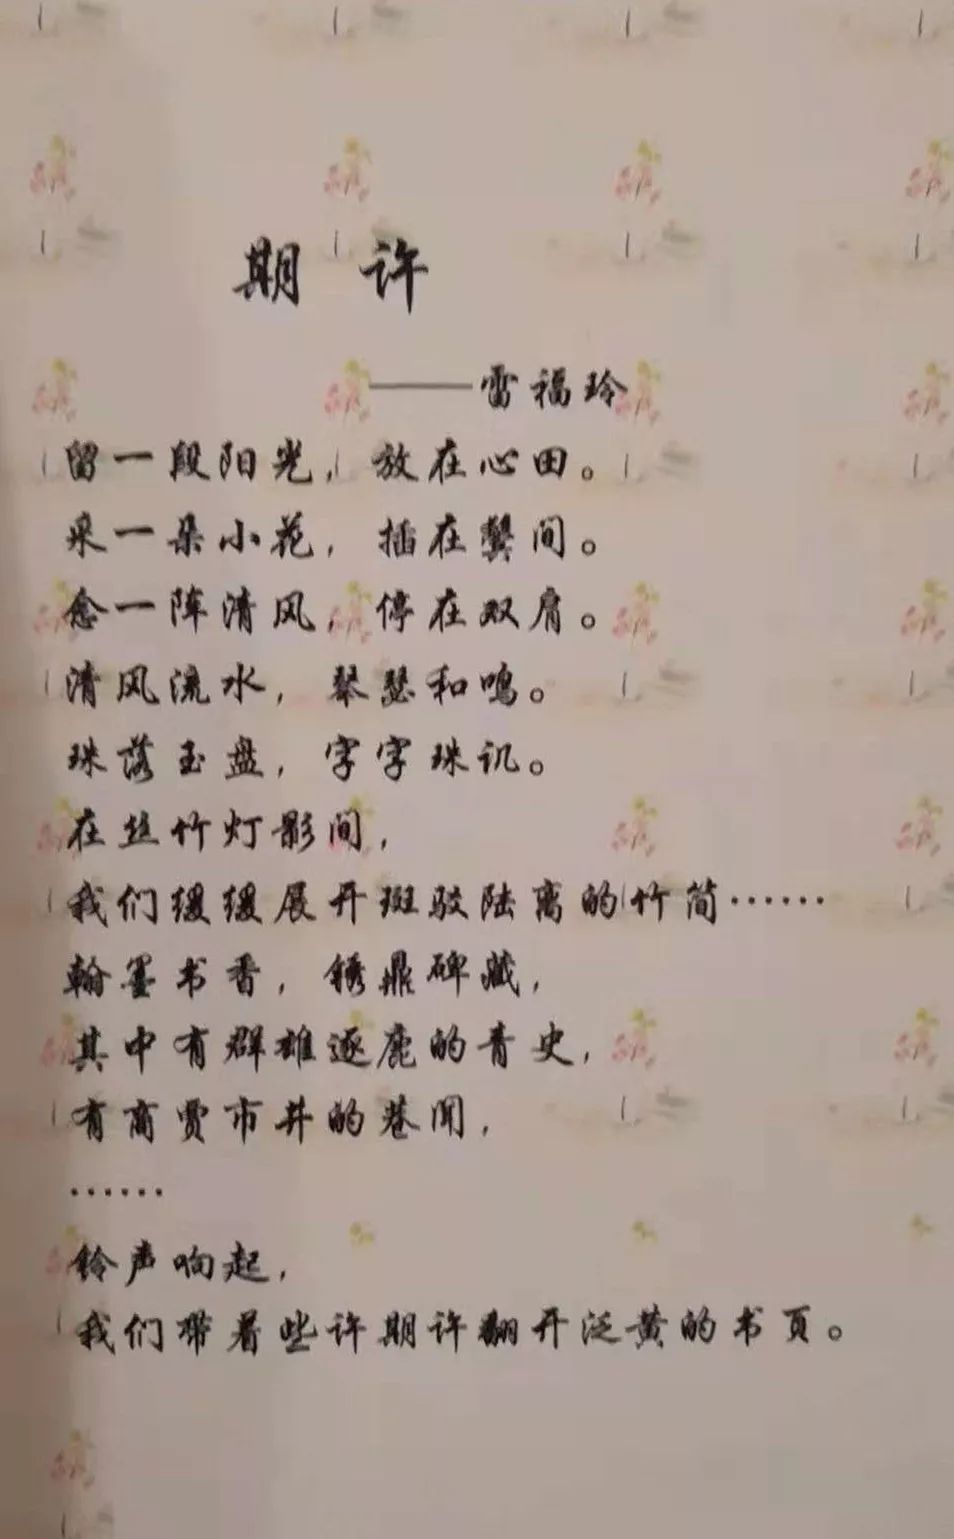 期许
——雷福玲
留一段阳光，放在心田。
采一朵小花，插在鬓间。
念一阵清风，停在双肩。
清风流水，琴瑟和鸣。
珠落玉盘，字字珠讥。
在丝竹灯影间，
我们缓缓展开斑驳陆离的竹简……
翰墨书香，锈鼎碑藏，
其中有群雄逐鹿的青史，
有商贾市井的巷闻，
……
铃声响起，
我们带着些许期许翻开泛黄的书页。